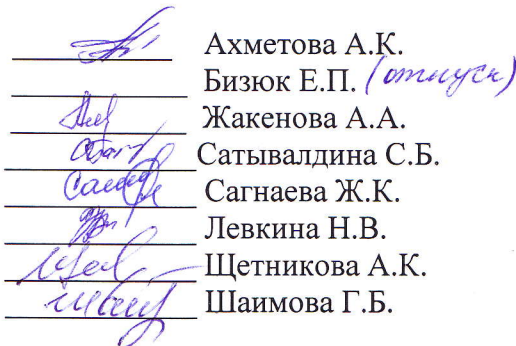 Ахметова А.К.
Бизюк Е.П. (отпуск)
Жакенова А.А.
Сатывалдина С.Б.
Сагнаева Ж.К.
Левкина Н.В.
Щетникова А.К.
Шаимова Г.Б.